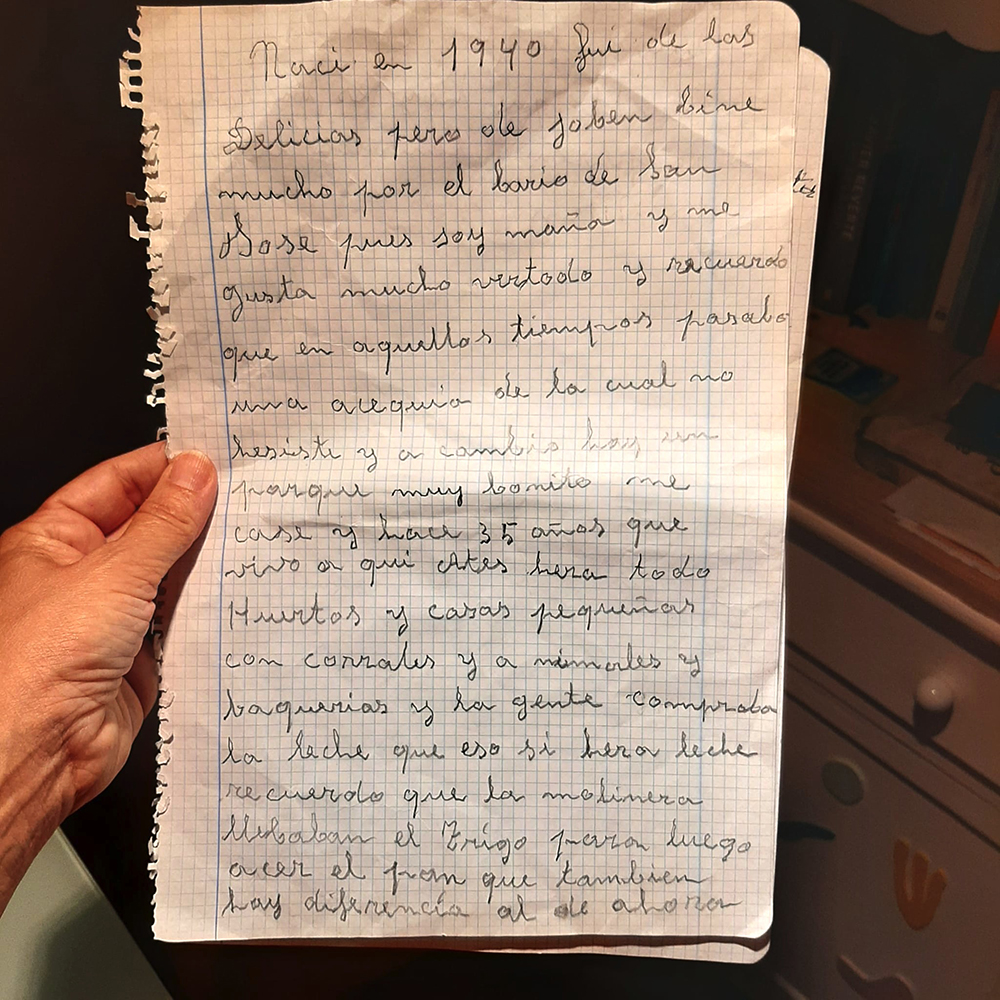 Naci en 1940 fui de las
Delicias pero de joben bine
mucho por el bario de San
Jose pues soy maña y me
gusta mucho vertodo y recuerdo
que en aquellos tiempos pasaba
una acequia de la cual no
hesiste y a cambio hay un
parque muy bonito me
case y hace 35 años que
vivo a qui Ates hera todo
Huertos y casas pequeñas
con corrales y a nimales y
baquerias y la gente compraba
la leche que eso si hera leche
recuerdo que la molinera
llebaban el Trigo para luego
acer el pan que tambien
hay diferencia al de ahora